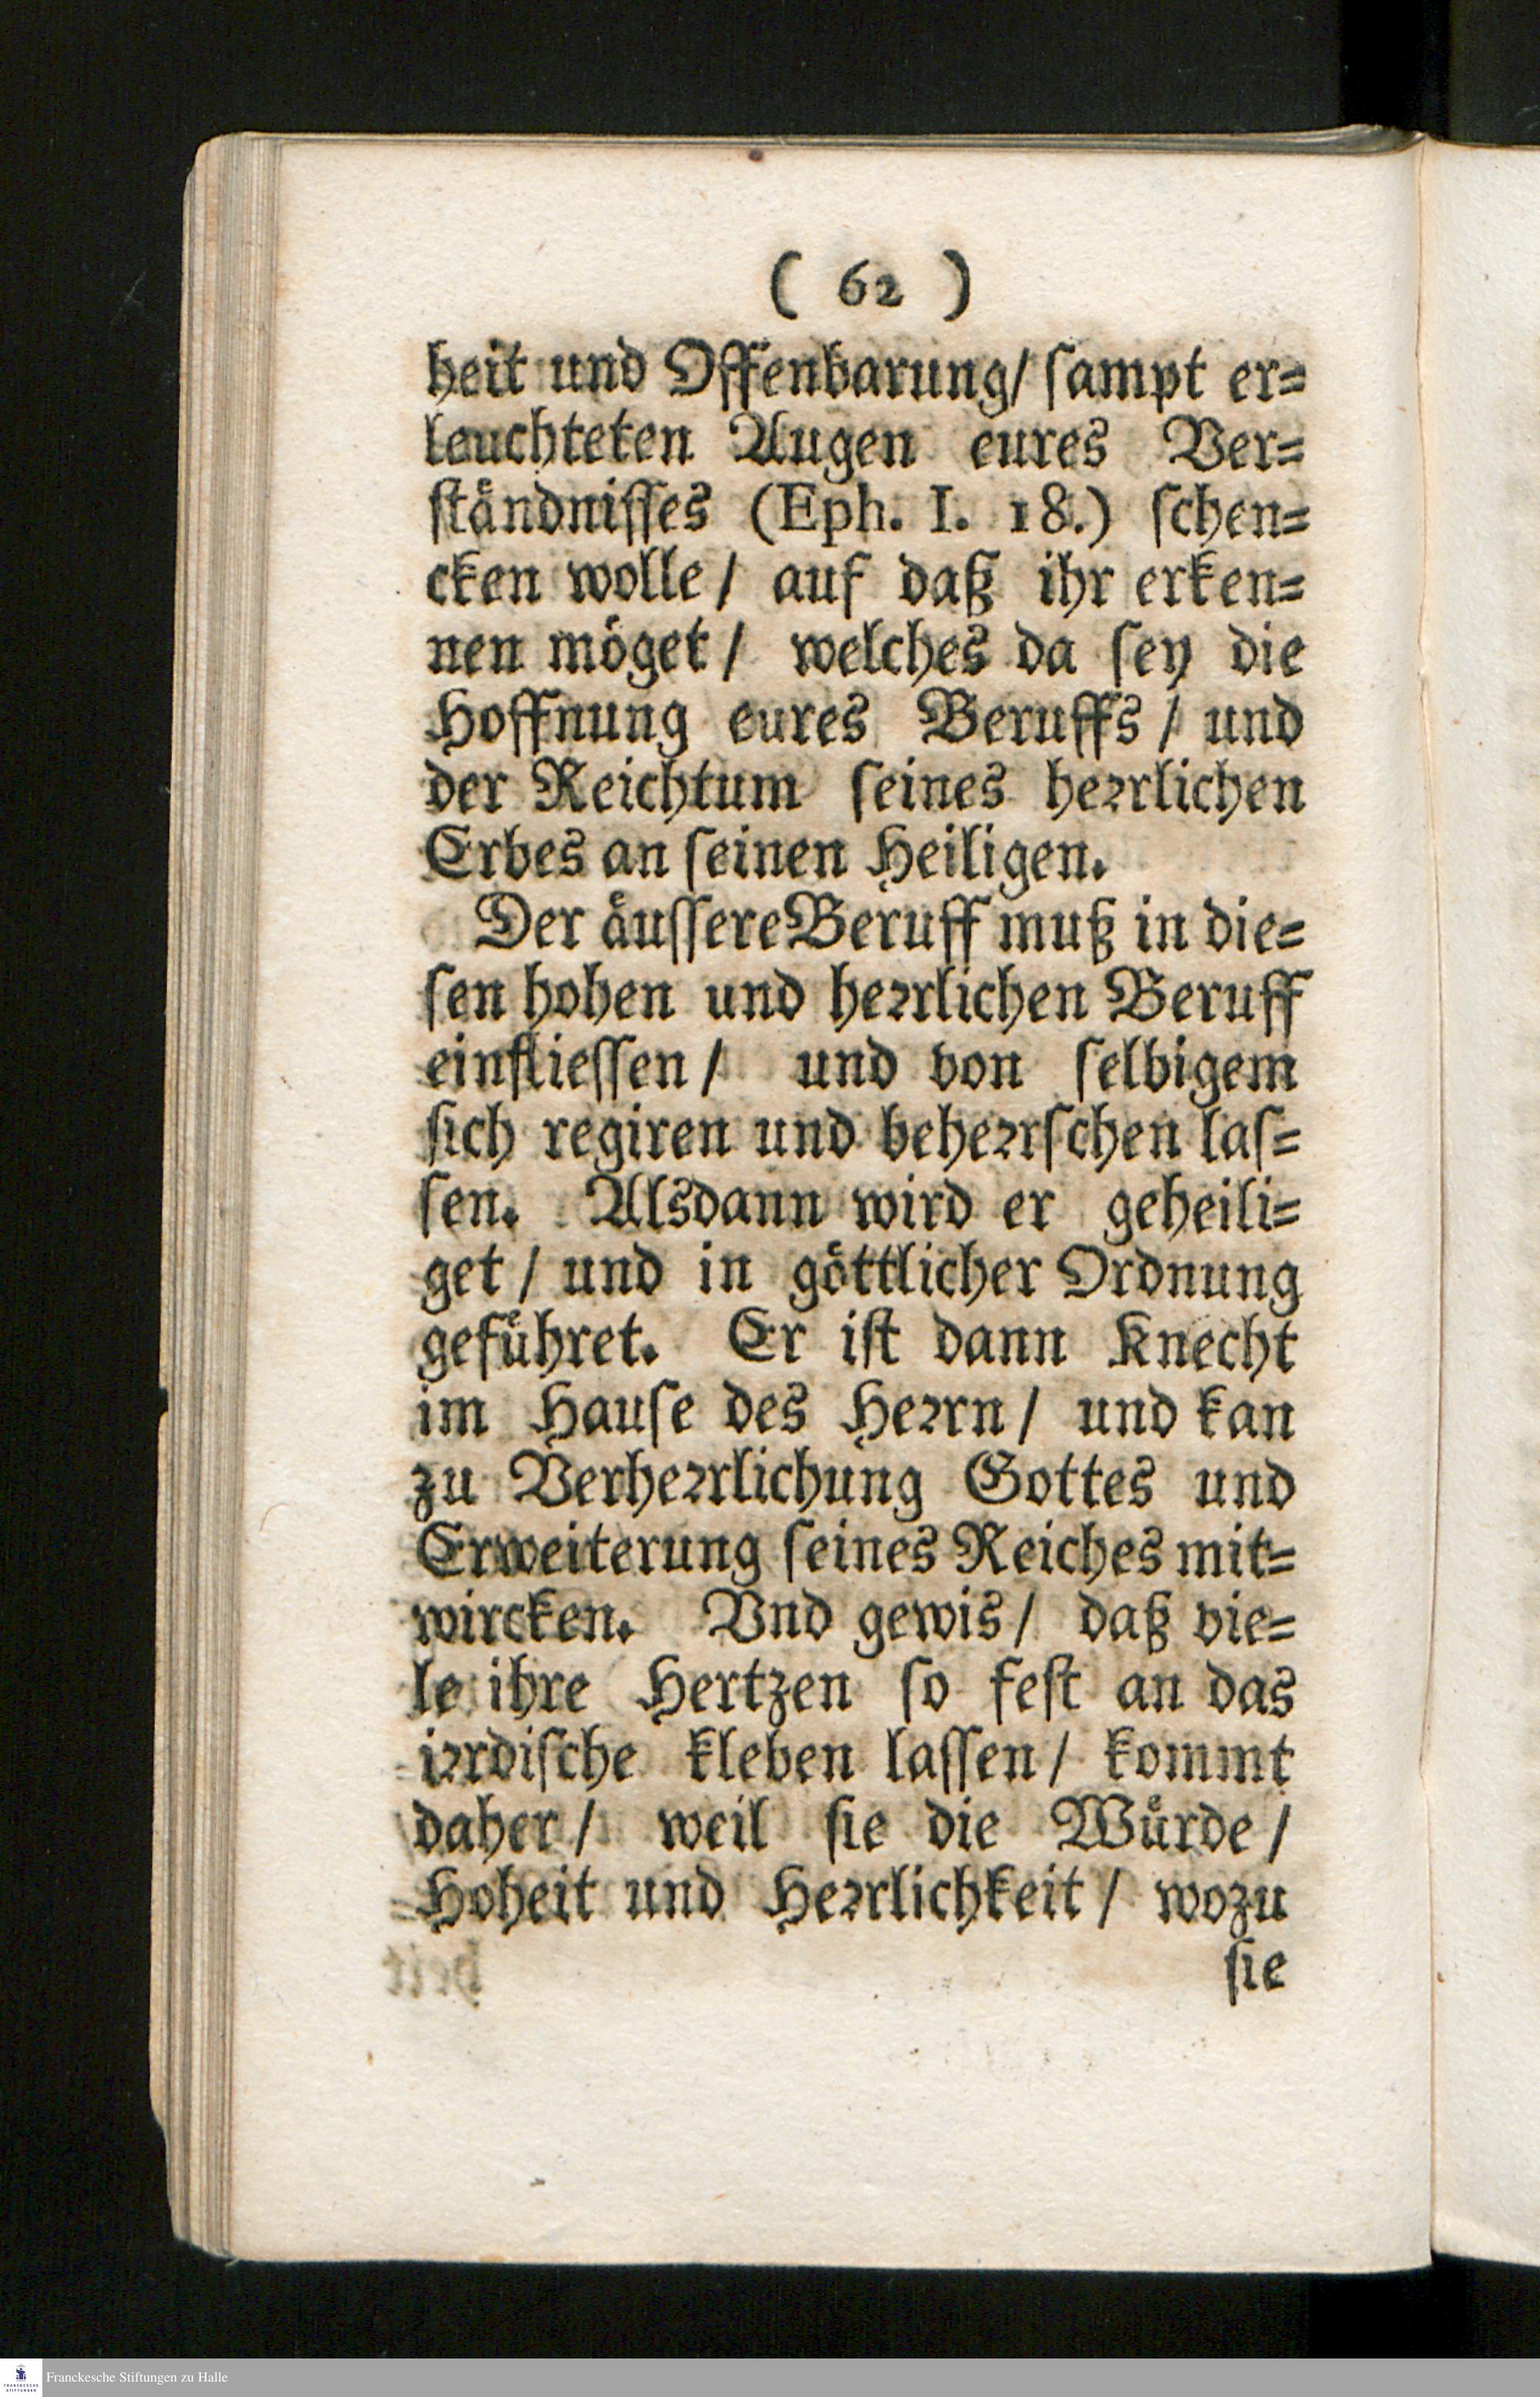 ( 62 )
heit und Offenbarung/ ſampt er⸗
leuchteten Augen eures Ver⸗
ſtaͤndniſſes (Eph. I. 18.) ſchen⸗
cken wolle/ auf daß ihr erken⸗
nen moͤget/ welches da ſey die
Hoffnung eures Beruffs/ und
der Reichtum ſeines heꝛrlichen
Erbes an ſeinen Heiligen.
Der aͤuſſere Beruff muß in die⸗
ſen hohen und heꝛrlichen Beruff
einflieſſen/ und von ſelbigem
ſich regiren und beheꝛrſchen laſ⸗
ſen. Alsdann wird er geheili⸗
get/ und in goͤttlicher Ordnung
gefuͤhret. Er iſt dann Knecht
im Hauſe des Heꝛrn/ und kan
zu Verheꝛrlichung Gottes und
Erweiterung ſeines Reiches mit⸗
wircken. Vnd gewis/ daß vie⸗
le ihre Hertzen ſo feſt an das
iꝛrdiſche kleben laſſen/ kommt
daher/ weil ſie die Wuͤrde/
Hoheit und Heꝛrlichkeit/ wozu
ſie
Franckesche Stiftungen zu Halle
FRANCKESCHE
STIFTUNGEN